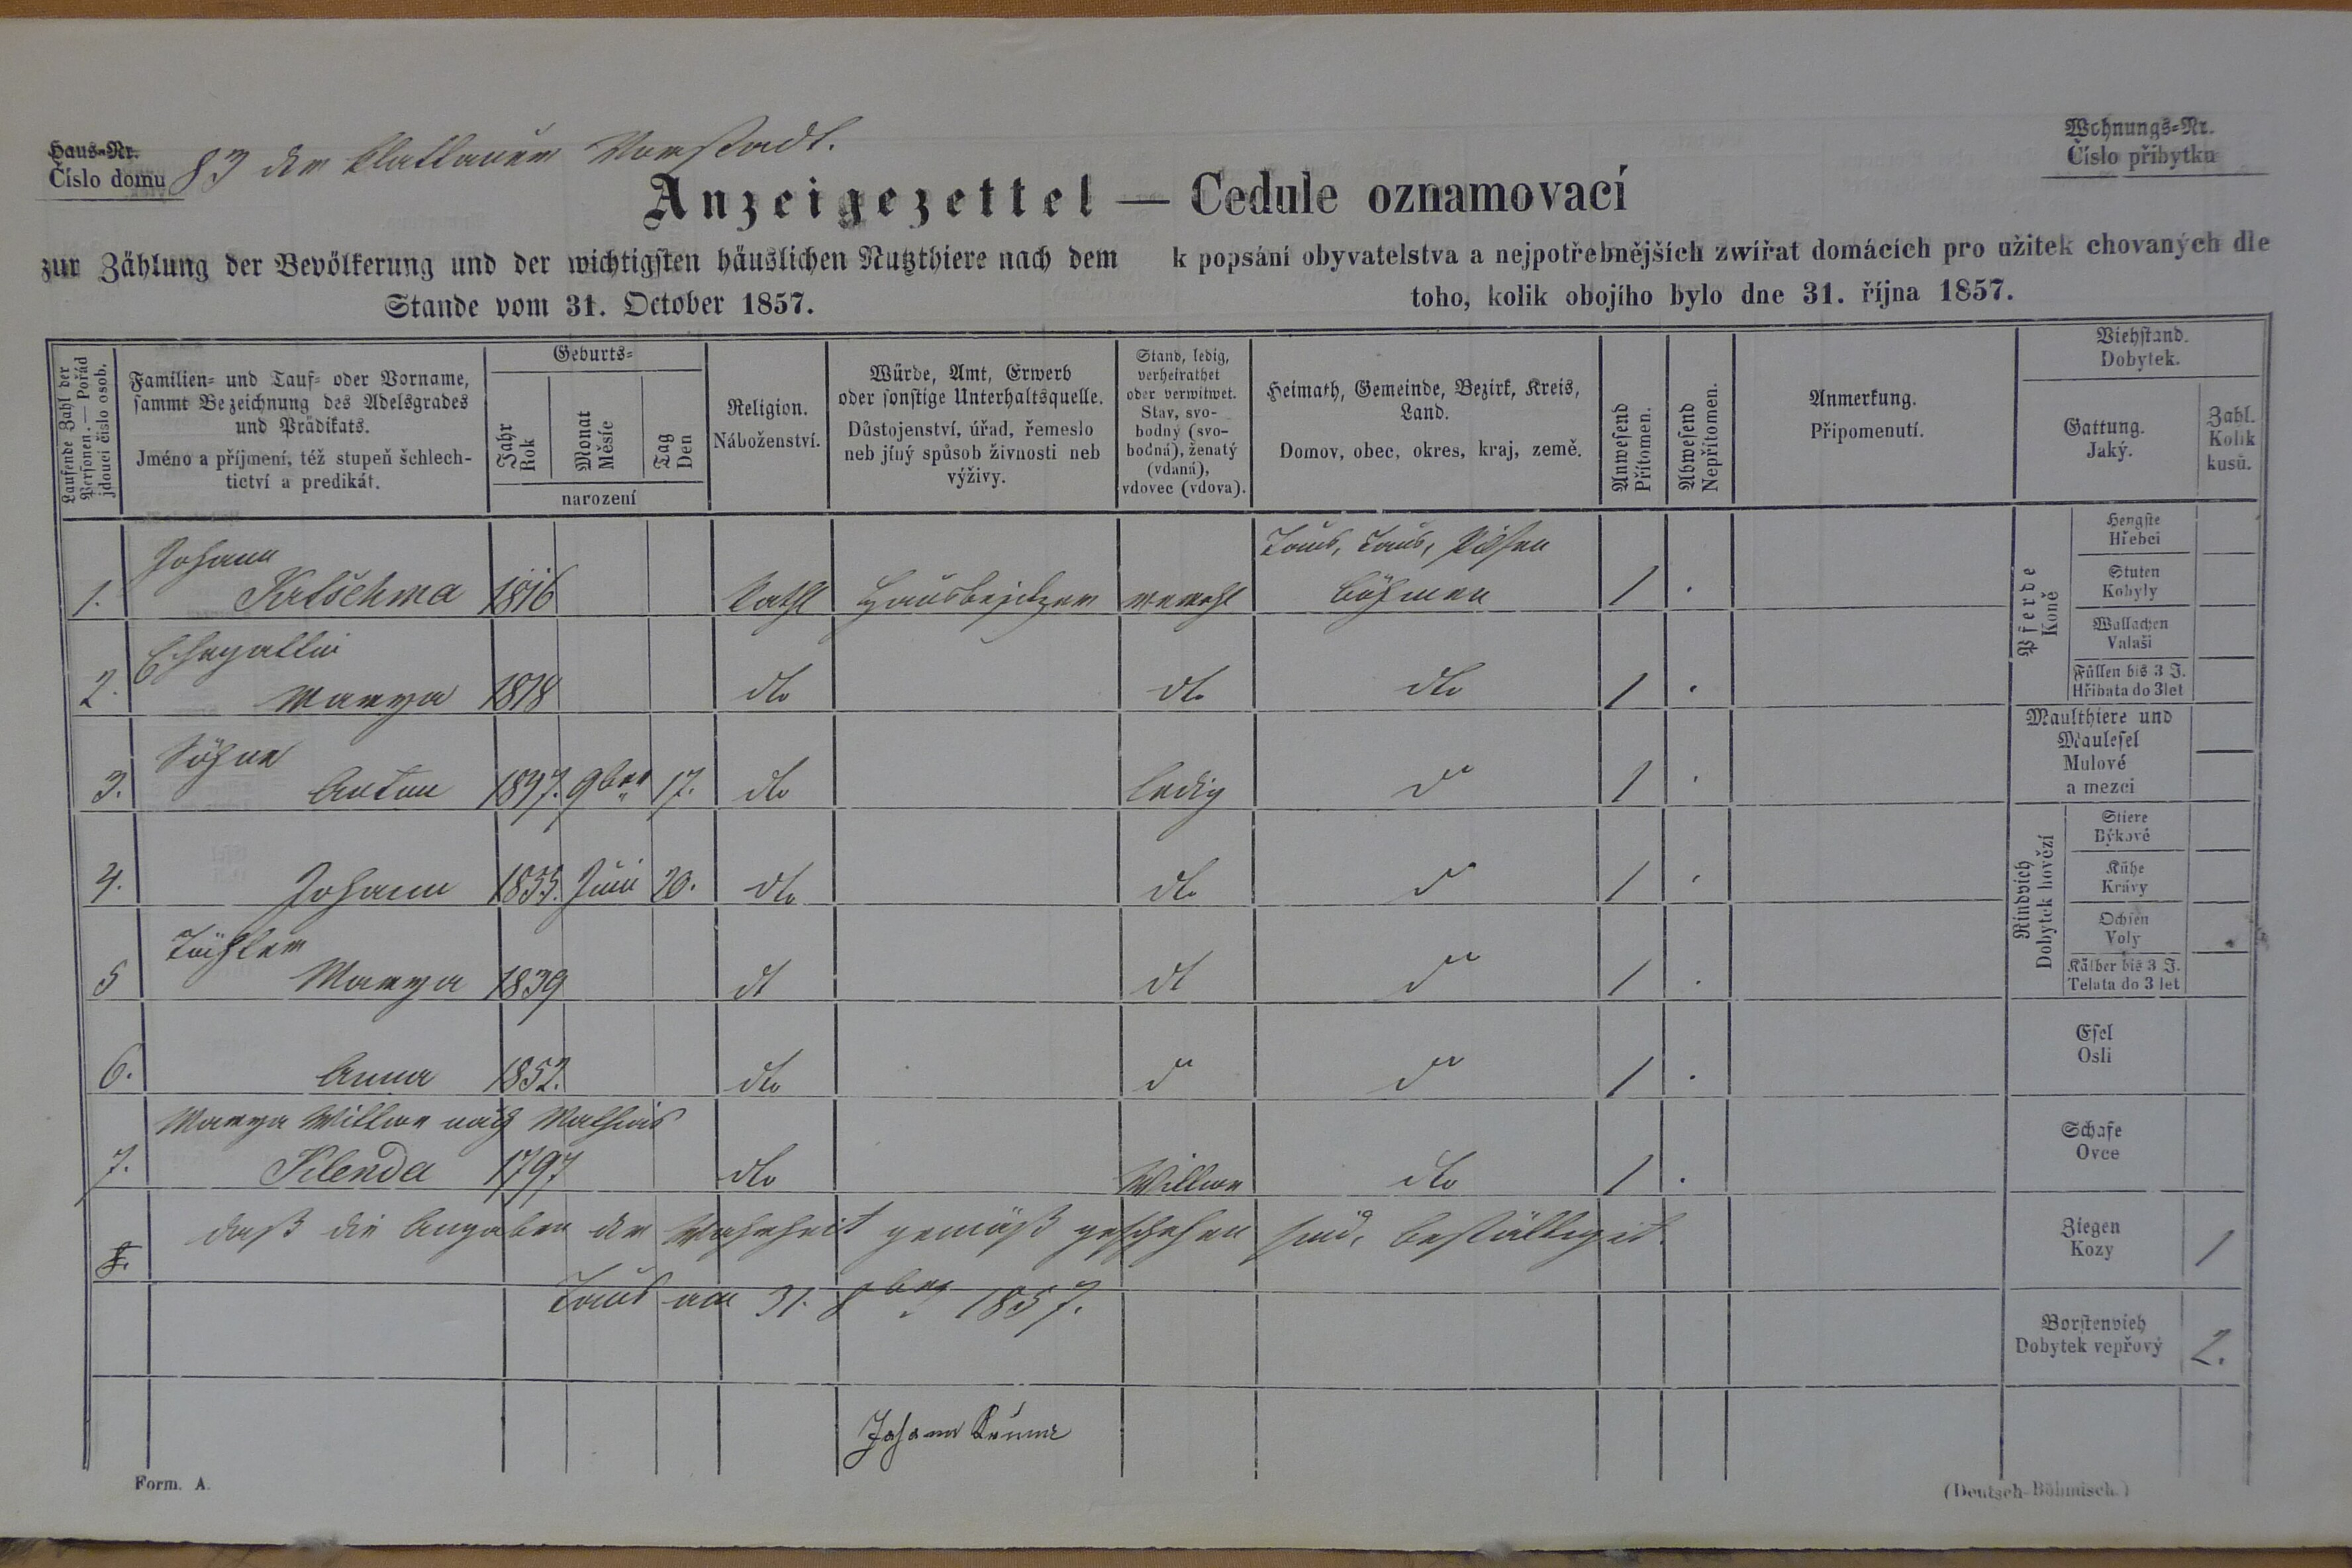 Haus-Nr.
Číslo domu
83 der Klattauer Vorstadt.
Wohnungs-Nr.
Číslo příbytku
Anzeigezettel — Cedule oznamovací
zur Zählung der Bevölkerung und der wichtigsten häuslichen Nutzthiere nach dem
Stande vom 31. October 1857.
k popsání obyvatelstva a nejpotřebnějších zwířat domácích pro užitek chovaných dle
toho, kolik obojího bylo dne 31. října 1857.
Laufende Zahl der
Personen. — Pořád
jdoucí číslo osob.
Familien- und Tauf- oder Vorname,
sammt Bezeichnung des Adelsgrades
und Prädikats.
Jméno a příjmení, též stupeň šchlech-
tictví a predikát.
Geburts-
Jahr
Rok
Monat
Měsíc
Tag
Den
narození
Religion.
Náboženství.
Würde, Amt, Erwerb
oder sonstige Unterhaltsquelle.
Důstojenství, úřad, řemeslo
neb jiný spůsob živnosti neb
výživy.
Stand, ledig,
verheirathet
oder verwitwet.
Stav, svo-
bodný (svo-
bodná), ženatý
(vdaná),
vdovec (vdova).
Heimath, Gemeinde, Bezirk, Kreis,
Land.
Domov, obec, okres, kraj, země.
Anwesend
Přítomen.
Abwesend
Nepřítomen.
Anmerkung.
Připomenutí.
Viehstand.
Dobytek.
Gattung.
Jaký.
Zahl.
Kolik
kusů.
Johann
Taus, Taus, Pilsen
1. Kutschma 1816 Kathl Hausbesitzer verehl Böhmen 1 .
Ehegattin
2. Marya 1818 dto dto dto 1 .
Söhne
3. Anton 1847. 9ber 17. dto ledig dto 1 .
4. Johann 1855. Juni 20. dto dto dto 1 .
Töchter
5 Marya 1839 dt dt dto 1 .
6. Anna 1852. dto dto dto 1 .
Marya Wittwe nach Mathias
7. Klenda 1797 dto Wittwe dto 1 .
8. daß die Angaben der Wahrheit gemäß geschehen sind, bestättiget.
Taus am 31. 8ber 1857.
Johann
Pferde
Koně
Hengste
Hřebci
Stuten
Kobyly
Wallachen
Valaši
Füllen bis 3 J.
Hříbata do 3 let
Maulthiere und
Maulesel
Mulové
a mezci
Rindvieh
Dobytek hovězí
Stiere
Býkové
Kühe
Krávy
Ochsen
Voly
Kälber bis 3 J.
Telata do 3 let
Esel
Osli
Schafe
Ovce
Ziegen
Kozy 1
Borstenvieh
Dobytek vepřový 2.
Form. A.
(Deutsch-Böhmisch.)